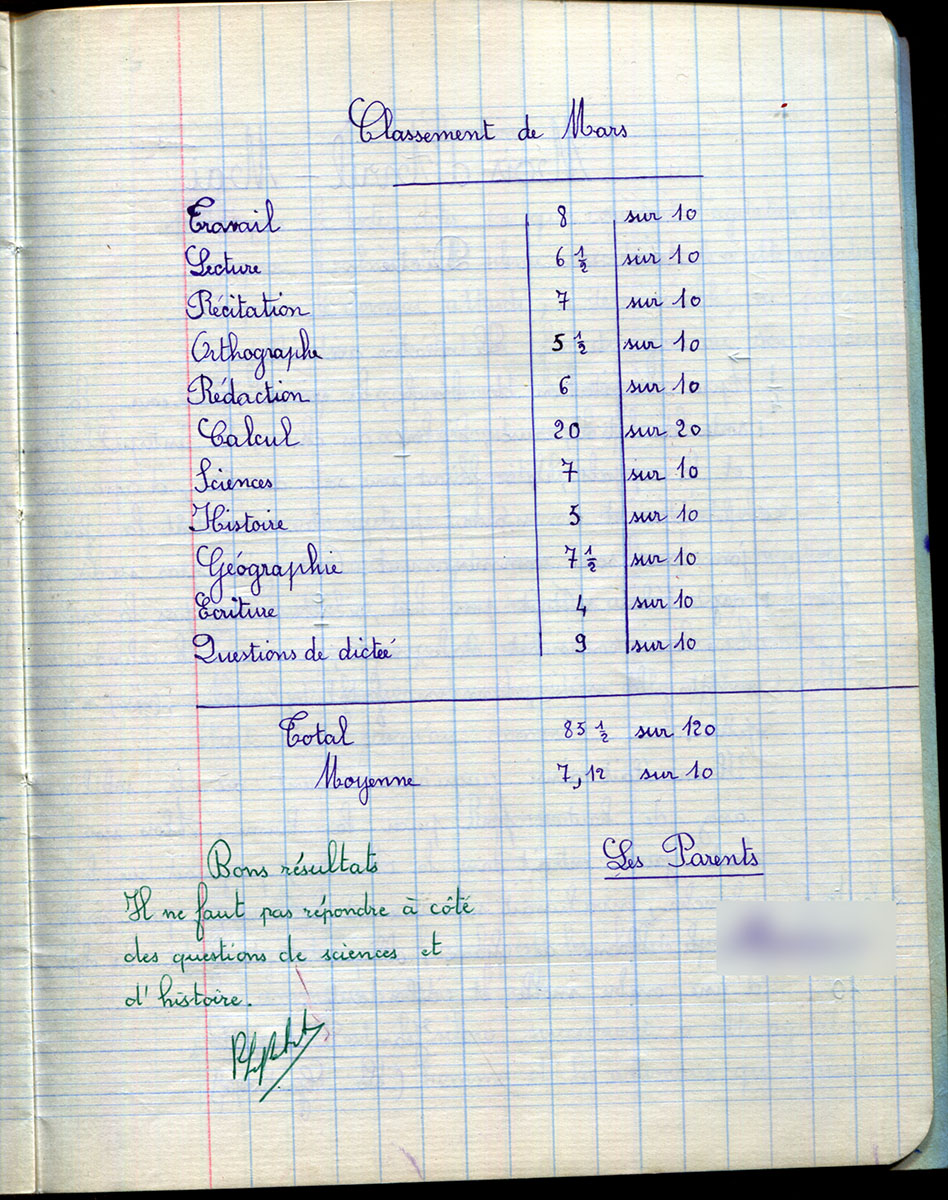 Classement de Mars
Travail 8 sur 10
Lecture 6 ½ sur 10
Récitation 7 sur 10
Orthographe 5 ½ sur 10
Rédaction 6 sur 10
Calcul 20 sur 20
Sciences 7 sur 10
Histoire 5 sur 10
Géographie 7 ½ sur 10
Ecriture 4 sur 10
Questions de dictée 9 sur 10
Total 85 ½ sur 120
Moyenne 7,12 sur 10
Bons résultats
Les Parents
Il ne faut pas répondre à côté
des questions de sciences et
d'histoire.